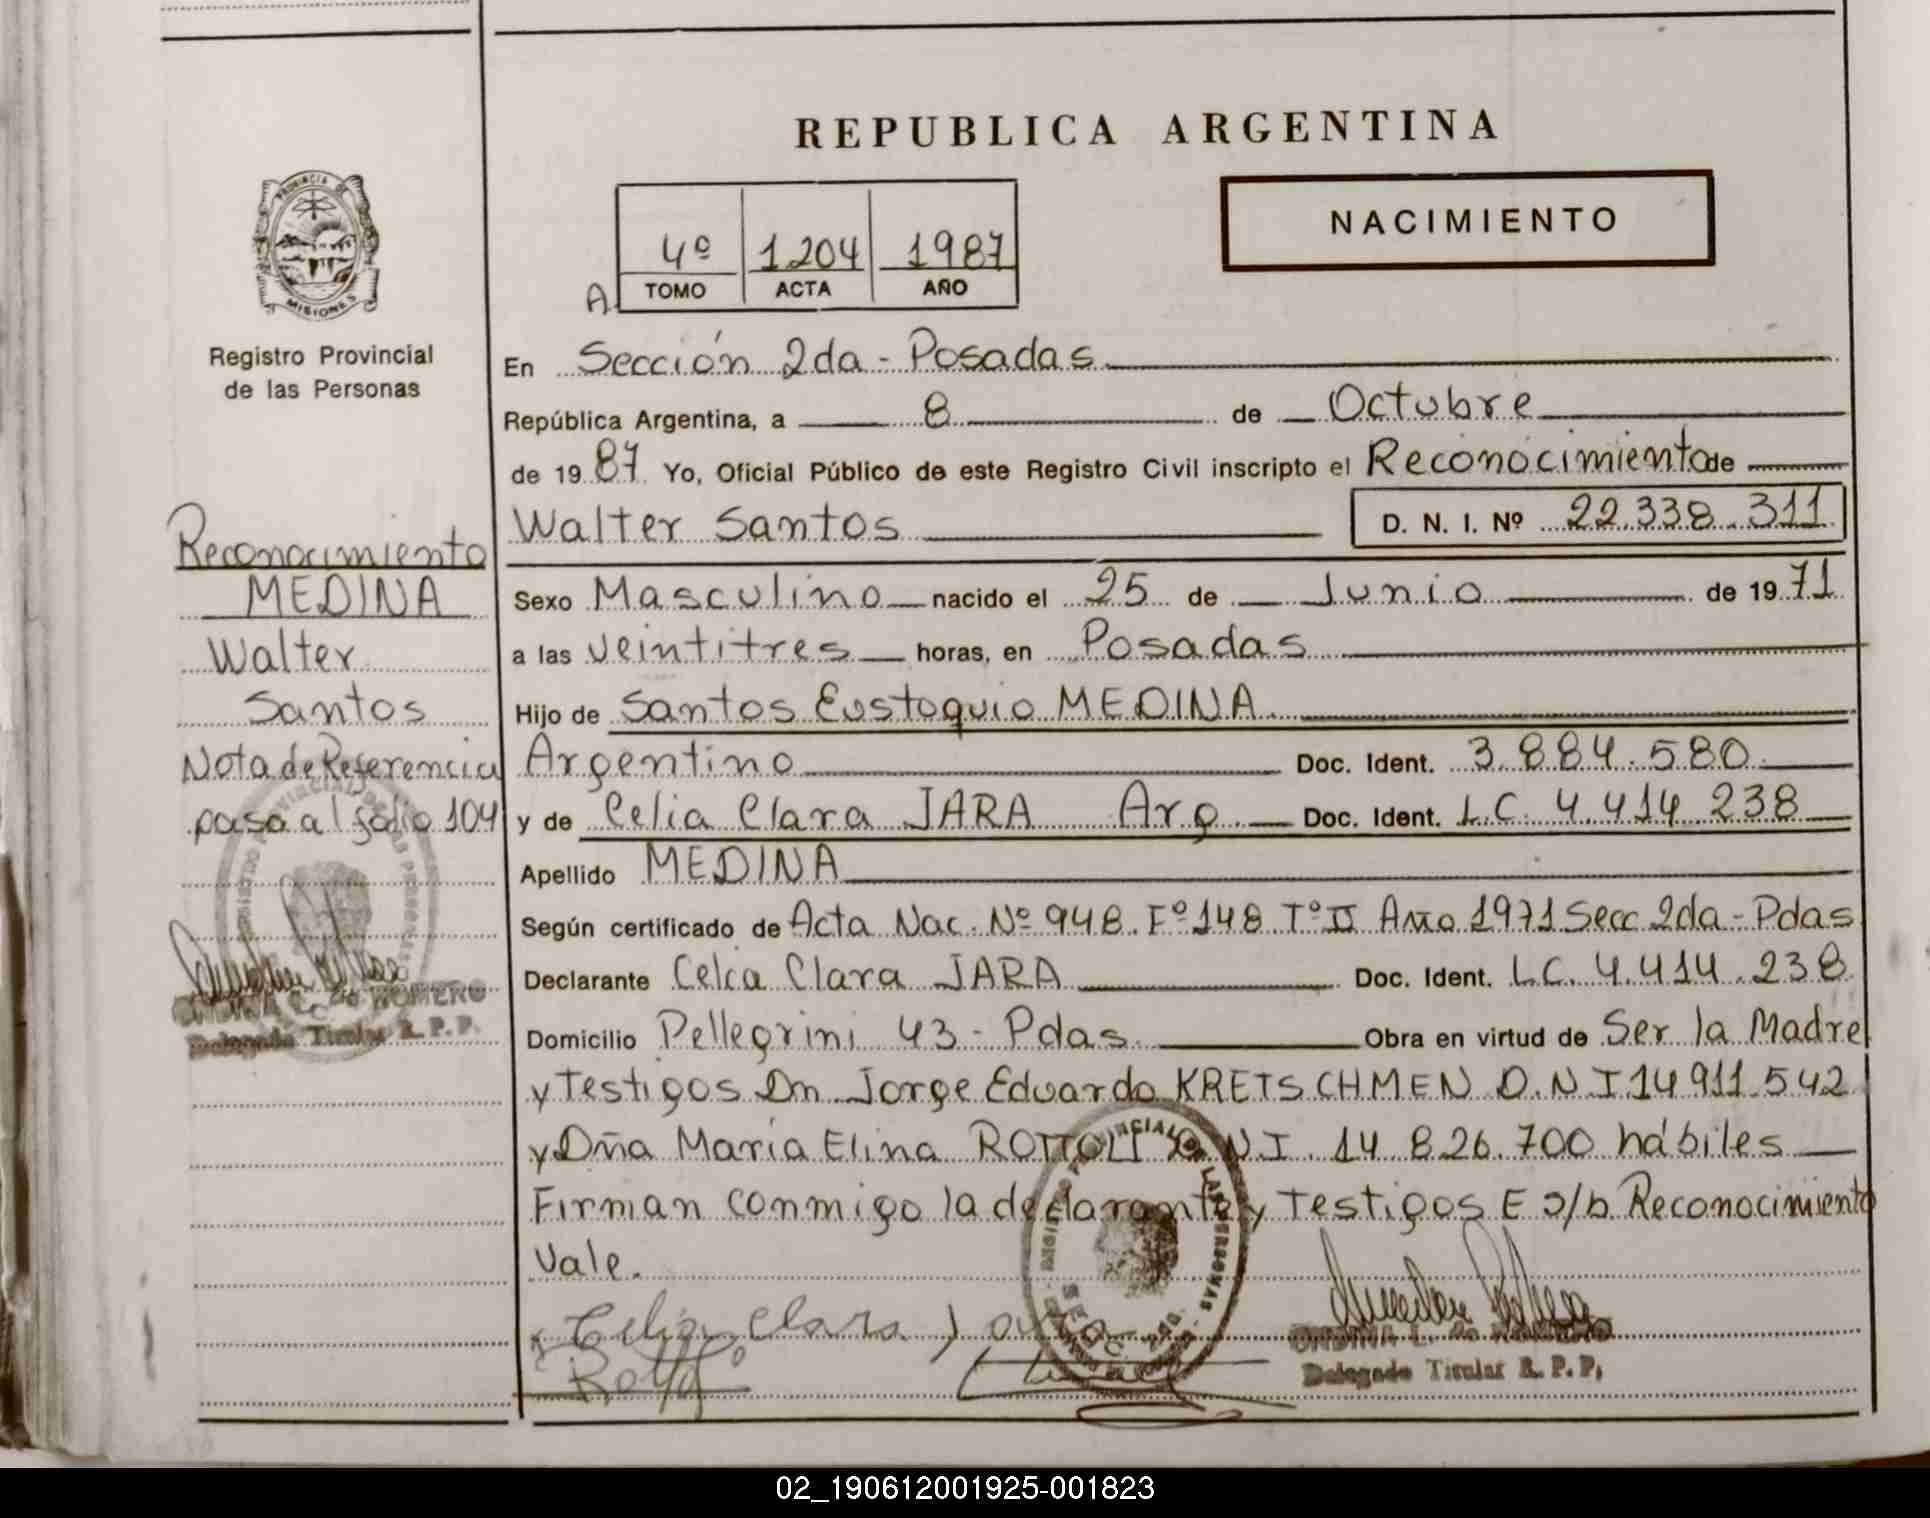 REPUBLICA ARGENTINA
PROVINCIA DE
MISIONES
Registro Provincial
de las Personas
NACIMIENTO
4º 1204 1987
A. TOMO ACTA AÑO
En Sección 2da - Posadas
República Argentina, a 8 de Octubre
de 1987 Yo, Oficial Público de este Registro Civil inscripto el Reconocimiento de
Walter Santos D. N. I. Nº 22.338.311
Sexo Masculino nacido el 25 de Junio de 1971
a las veintitres horas, en Posadas
Hijo de Santos Eustoquio MEDINA
Argentino Doc. Ident. 3.884.580
y de Celia Clara JARA Arg. Doc. Ident. L.C. 4.414.238
Apellido MEDINA
Según certificado de Acta Nac. Nº 948 Fº 148 Tº II Año 1971 Secc 2da - Pdas
Declarante Celia Clara JARA Doc. Ident. L.C. 4.414.238
Domicilio Pellegrini 43 - Pdas. Obra en virtud de Ser la Madre
y Testigos Dn Jorge Eduardo KRETSCHMEN D.N.I 14.911.542
y Dña María Elina ROTTOLI D.N.I. 14.826.700 hábiles
Firman conmigo la declarante y Testigos E s/b Reconocimiento
Vale.
Celia Clara
ONDINA L. de ROMERO
Delegado Titular R. P. P.
REGISTRO PROVINCIAL DE LAS PERSONAS
Reconocimiento
MEDINA
Walter
Santos
Nota de Referencia
pasa al folio 104
REGISTRO PROVINCIAL DE LAS PERSONAS
de ROMERO
Delegado Titular R. P. P.
02_190612001925-001823